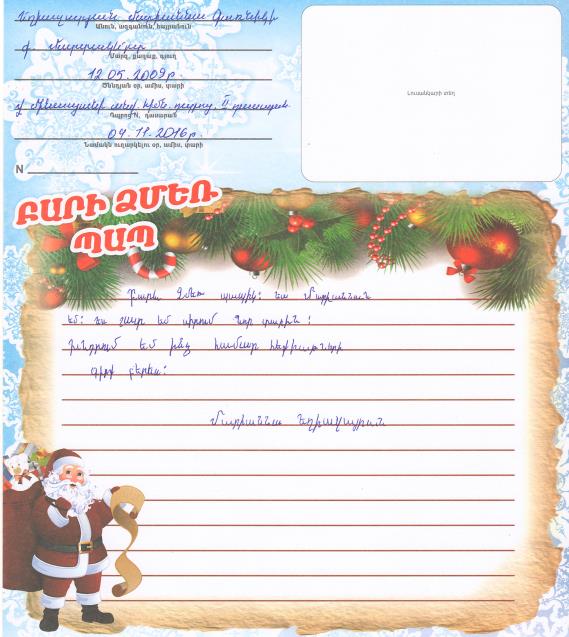 Եղիազարյան Մարիաննա Գառնիկի
Անուն, ազգանուն, հայրանուն
Մարզ, քաղաք, գյուղ
12 05. 2009թ.
Ծննդյան օր, ամիս, տարի
Դպրոց N, դասարան
04. 11. 2016թ.
Նամակն ուղարկելու օր, ամիս, տարի
N
Լուսանկարի տեղ
ԲԱՐԻ ՁՄԵՌ
ՊԱՊ
Բարև Ձմեռ պապիկ: Ես Մարիաննան
եմ: Ես շատ եմ սիրում Նոր տարին:
Խնդրում եմ ինձ համար հեքիաթների
գիրք բերես:
Մարիաննա Եղիազարյան